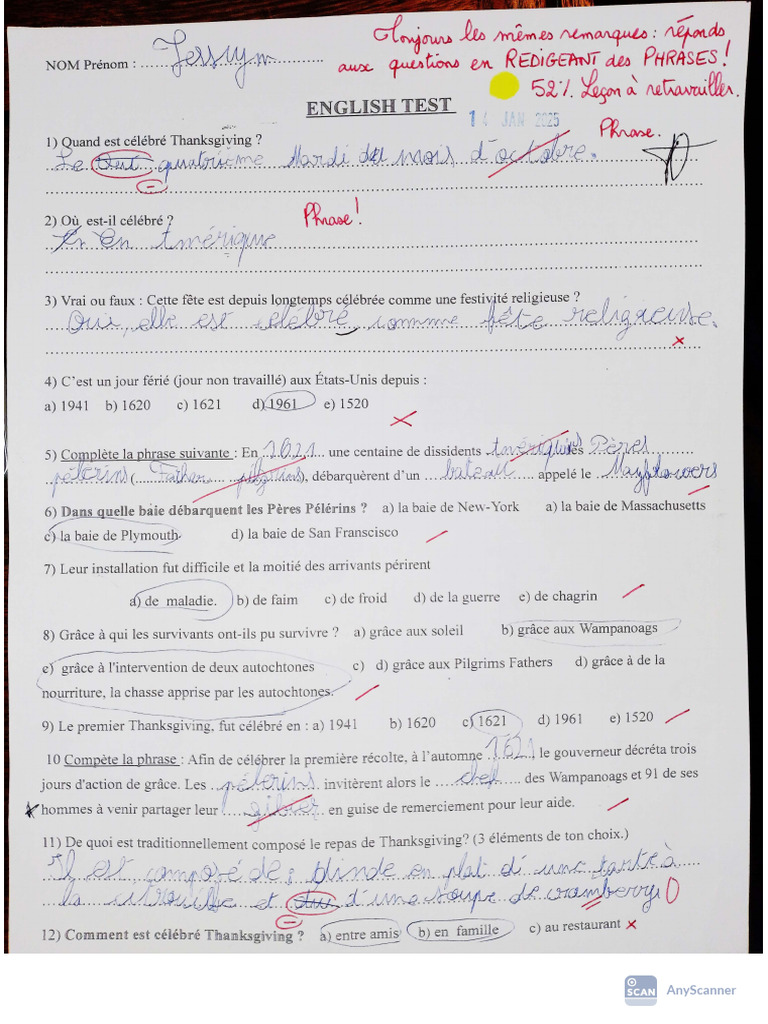 Toujours les mêmes remarques : réponds
NOM Prénom : Jessym
aux questions en REDIGEANT des PHRASES !
52% Leçon à retravailler.
ENGLISH TEST
14 JAN 2025
1) Quand est célébré Thanksgiving ?
Phrase.
Le quatrième Mardi du mois d'octobre.
2) Où, est-il célébré ?
Phrase !
En Amérique
3) Vrai ou faux : Cette fête est depuis longtemps célébrée comme une festivité religieuse ?
Oui, elle est célébré comme fête religieuse.
4) C'est un jour férié (jour non travaillé) aux États-Unis depuis :
a) 1941 b) 1620 c) 1621 d) 1961 e) 1520
5) Complète la phrase suivante : En 1621 une centaine de dissidents les Pères
pèlerins (Father pilgrins), débarquèrent d'un bateau appelé le Mayflowers
6) Dans quelle baie débarquent les Pères Pélérins ? a) la baie de New-York a) la baie de Massachusetts
c) la baie de Plymouth d) la baie de San Franscisco
7) Leur installation fut difficile et la moitié des arrivants périrent
a) de maladie. b) de faim c) de froid d) de la guerre e) de chagrin
8) Grâce à qui les survivants ont-ils pu survivre ? a) grâce aux soleil b) grâce aux Wampanoags
e) grâce à l'intervention de deux autochtones c) d) grâce aux Pilgrims Fathers d) grâce à de la
nourriture, la chasse apprise par les autochtones.
9) Le premier Thanksgiving, fut célébré en : a) 1941 b) 1620 c) 1621 d) 1961 e) 1520
10 Compète la phrase : Afin de célébrer la première récolte, à l'automne 1621, le gouverneur décréta trois
jours d'action de grâce. Les pélerins invitèrent alors le chef des Wampanoags et 91 de ses
hommes à venir partager leur gibier en guise de remerciement pour leur aide.
11) De quoi est traditionnellement composé le repas de Thanksgiving? (3 éléments de ton choix.)
Il est composé de : dinde en plat d'une tarte à
la citrouille et d'une soupe de cramberry
12) Comment est célébré Thanksgiving ? a) entre amis b) en famille c) au restaurant
SCAN AnyScanner